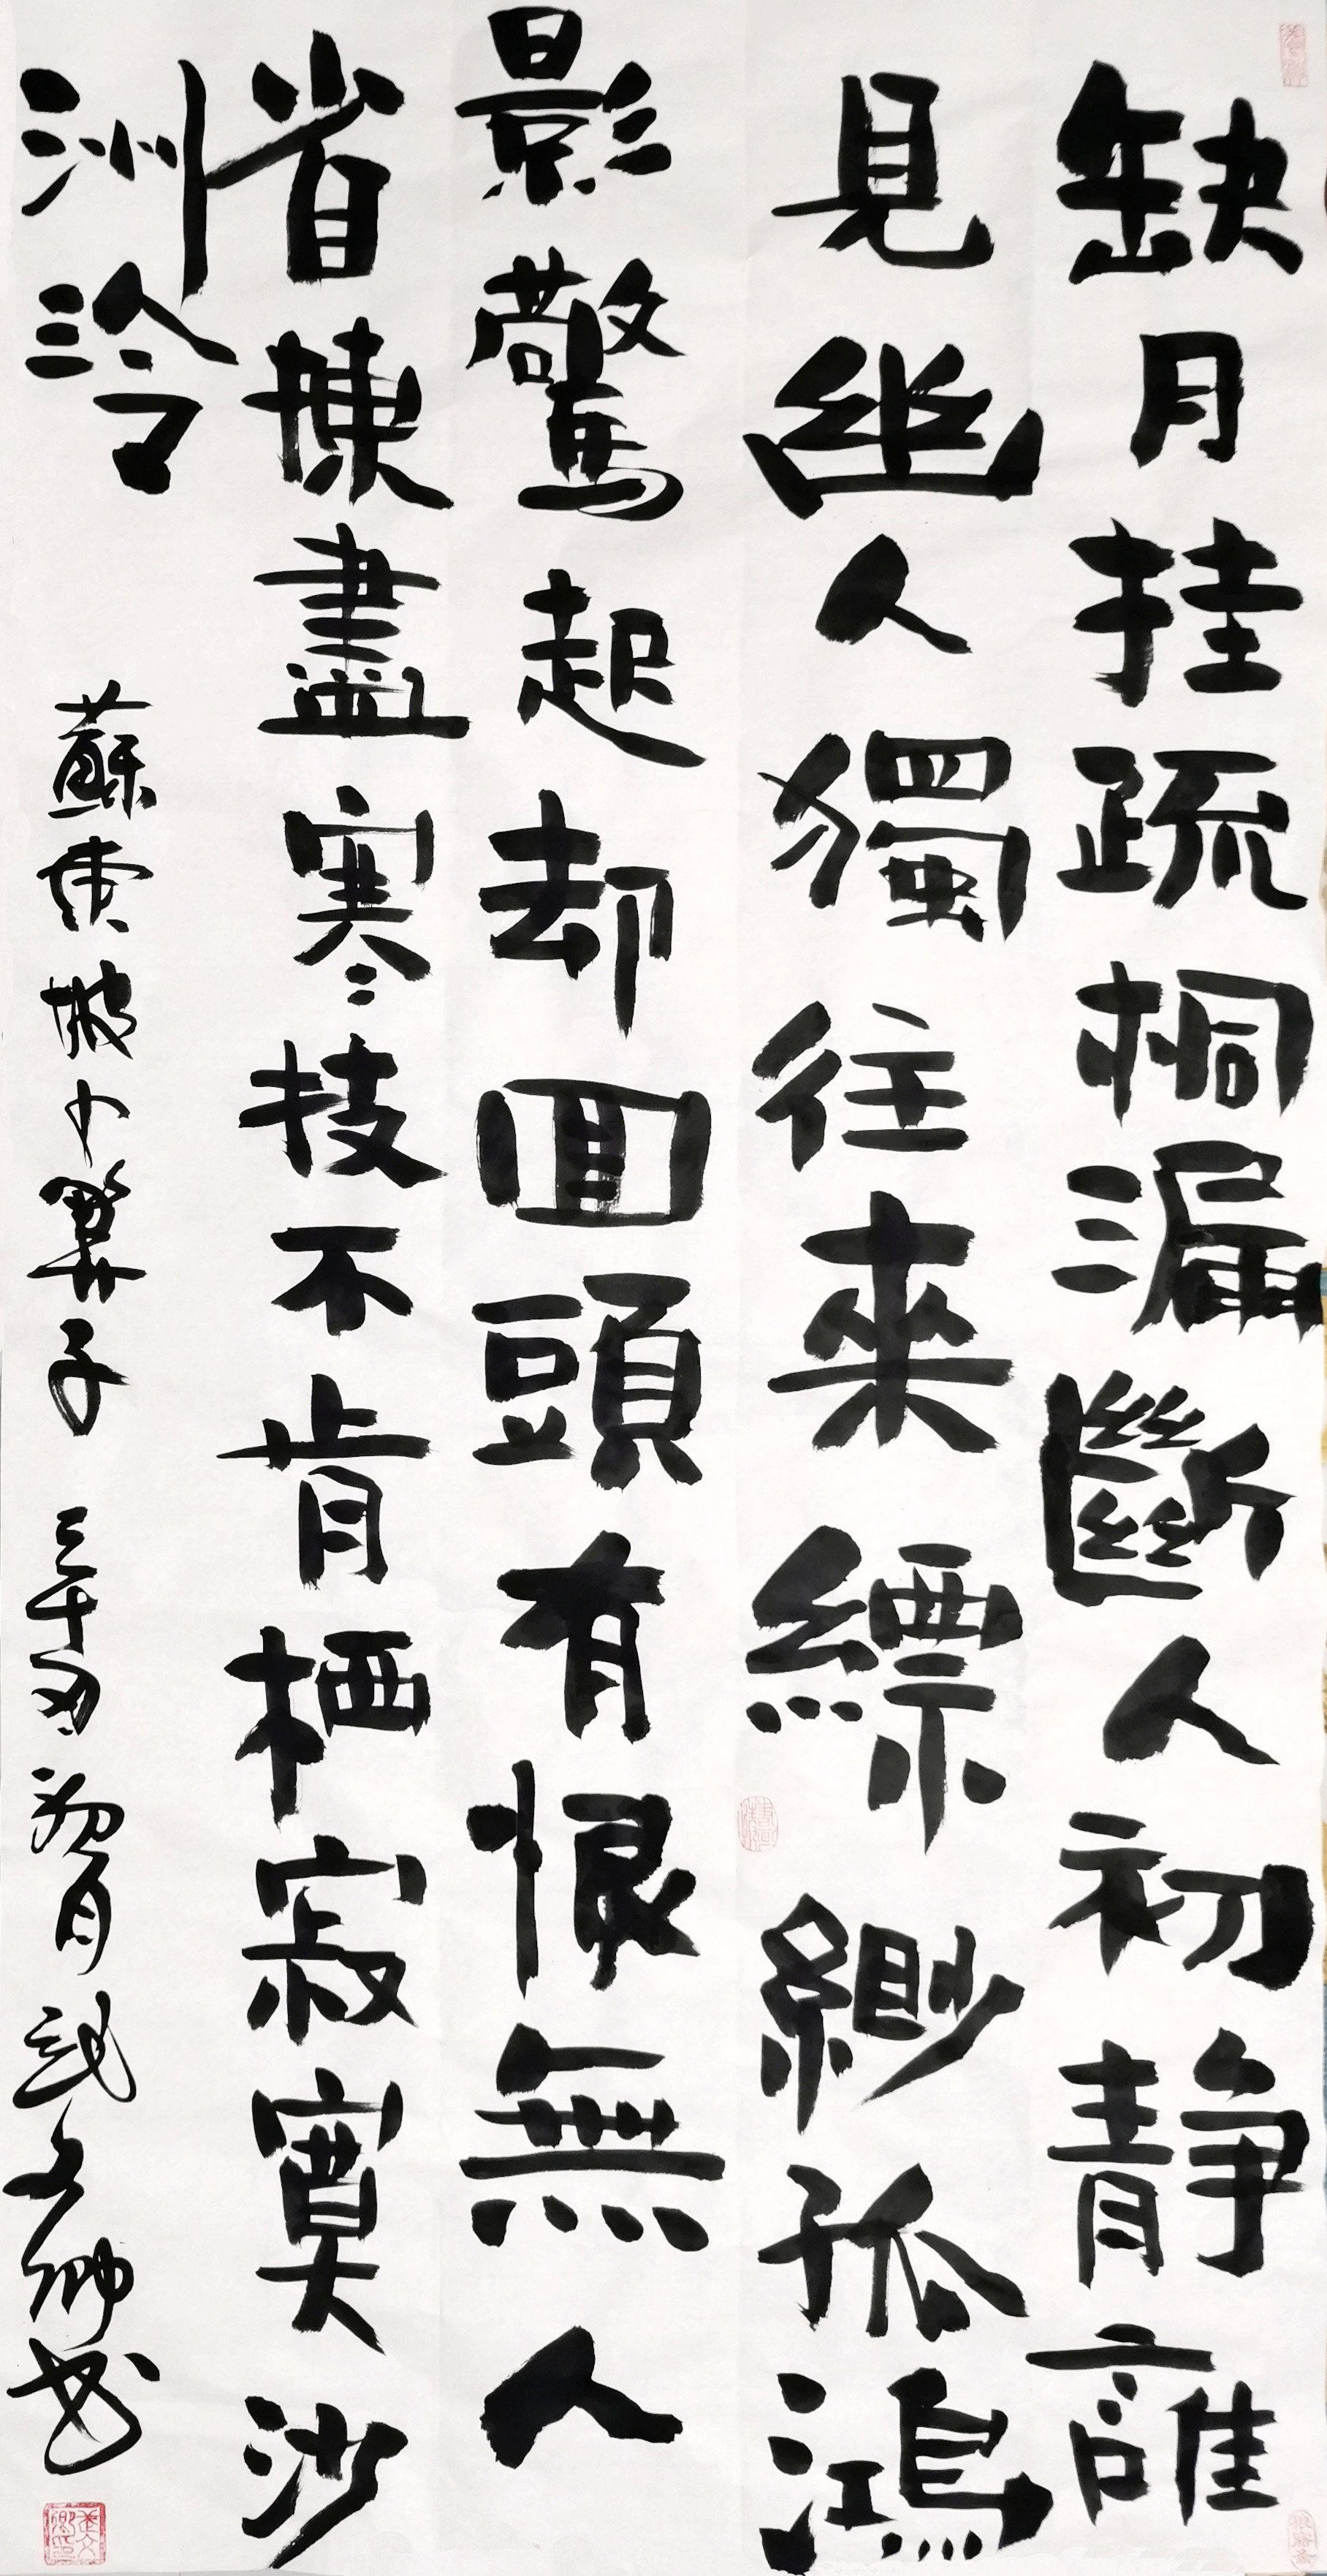 缺月挂疏桐漏斷人初静誰
見幽人獨往來縹緲孤鴻
影驚起却回頭有恨無人
省揀盡寒枝不肯栖寂寞沙
洲冷
蘇東坡卜算子